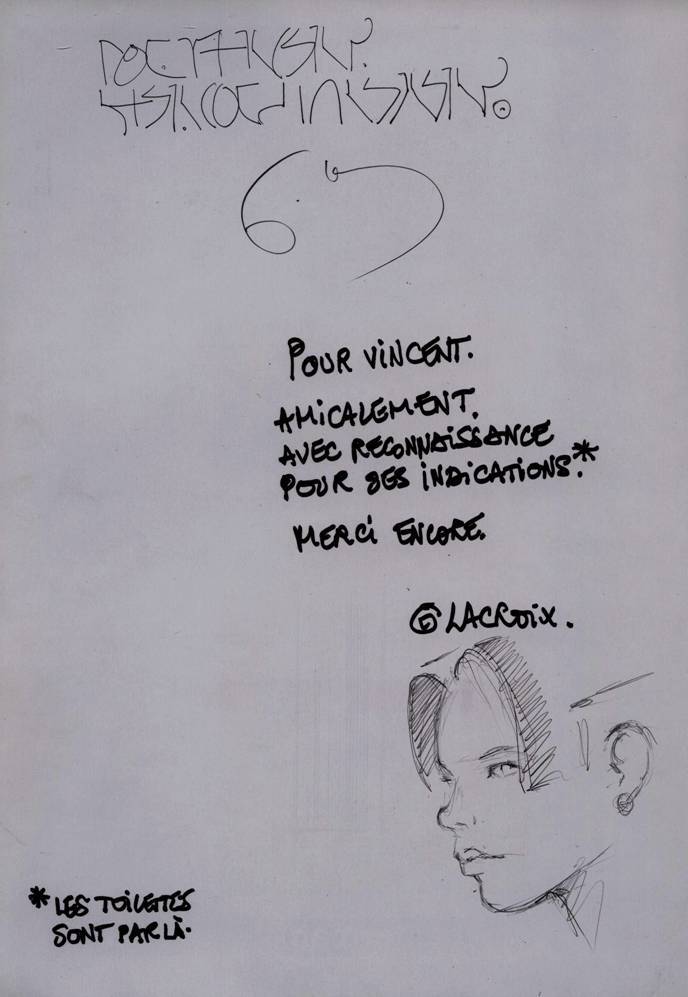 POUR VINCENT.
AMICALEMENT.
AVEC RECONNAISSANCE
POUR SES INDICATIONS.*
MERCI ENCORE.
G LACROIX.
* LES TOILETTES
SONT PAR LÀ.